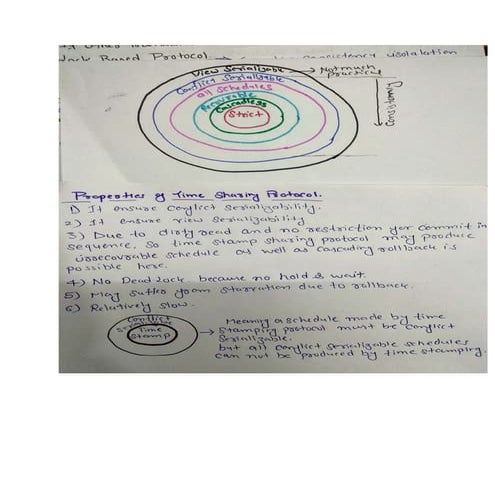 Lock Based Protocol → consistency isolatation
View Serializable → Not much practical
Conflict Serializable
All Schedules
Recoverable
Cascadless
Strict
Consistency
Properties of Time Sharing Protocol.
1) It ensure Conflict Serializability.
2) It ensure view Serializability
3) Due to dirty read and no restriction for Commit in
sequence, So time stamp sharing protocol may produce
irrecoverable schedule as well as Cascading rollback is
possible here.
4) No Dead lock because no hold & wait.
5) May suffer from starvation due to rollback.
6) Relatively slow.
Conflict
Serializable
Time
Stamp
→ Meaning a schedule made by time
Stamping protocol must be Conflict
Serializable.
but all Conflict serializable schedules
Can not be produced by time stamping.